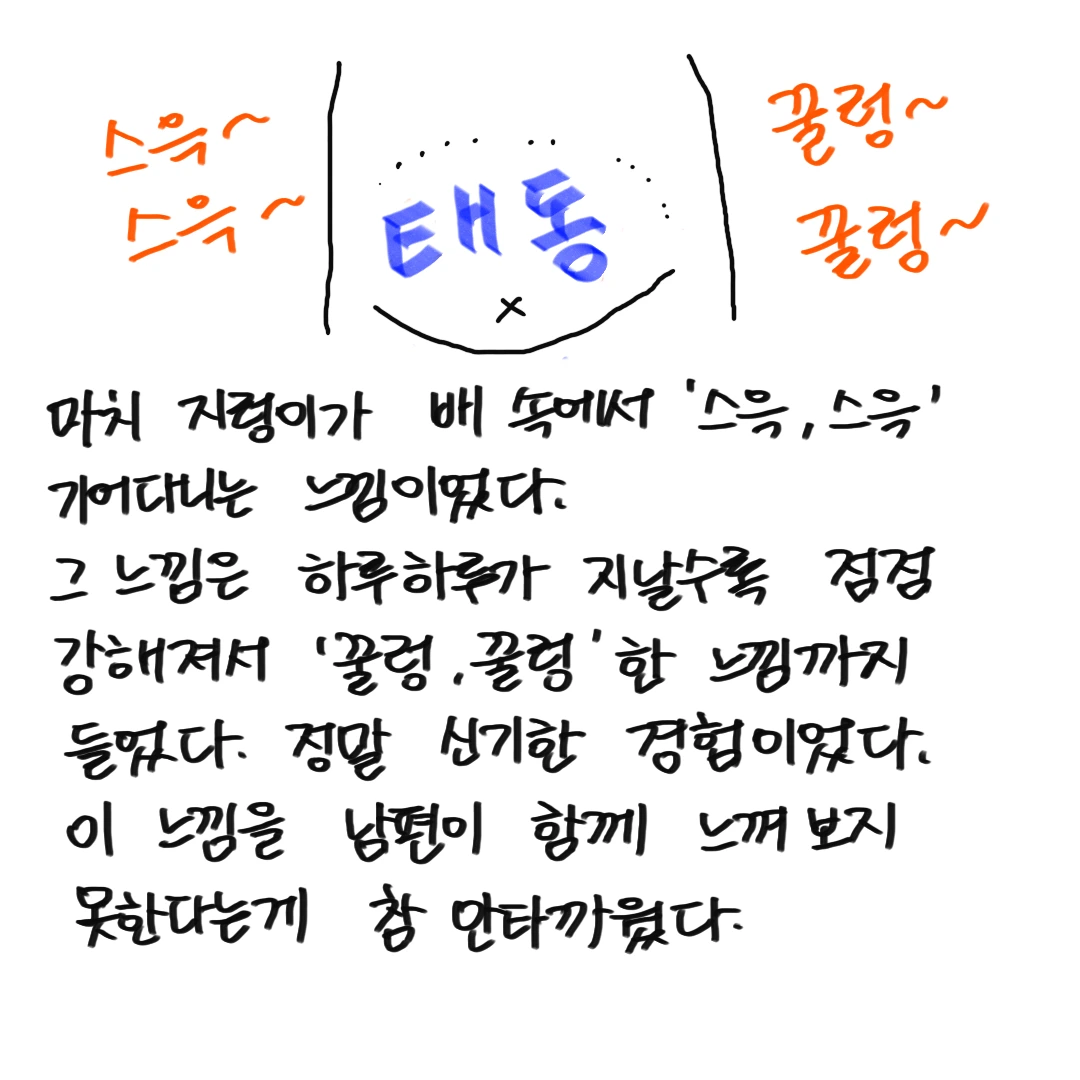 스윽~
스윽~
태동
꿀렁~
꿀렁~
마치 지렁이가 배 속에서 '스윽, 스윽'
기어다니는 느낌이었다.
그 느낌은 하루하루가 지날수록 점점
강해져서 '꿀렁, 꿀렁'한 느낌까지
들었다. 정말 신기한 경험이었다.
이 느낌을 남편이 함께 느껴 보지
못한다는게 참 안타까웠다.